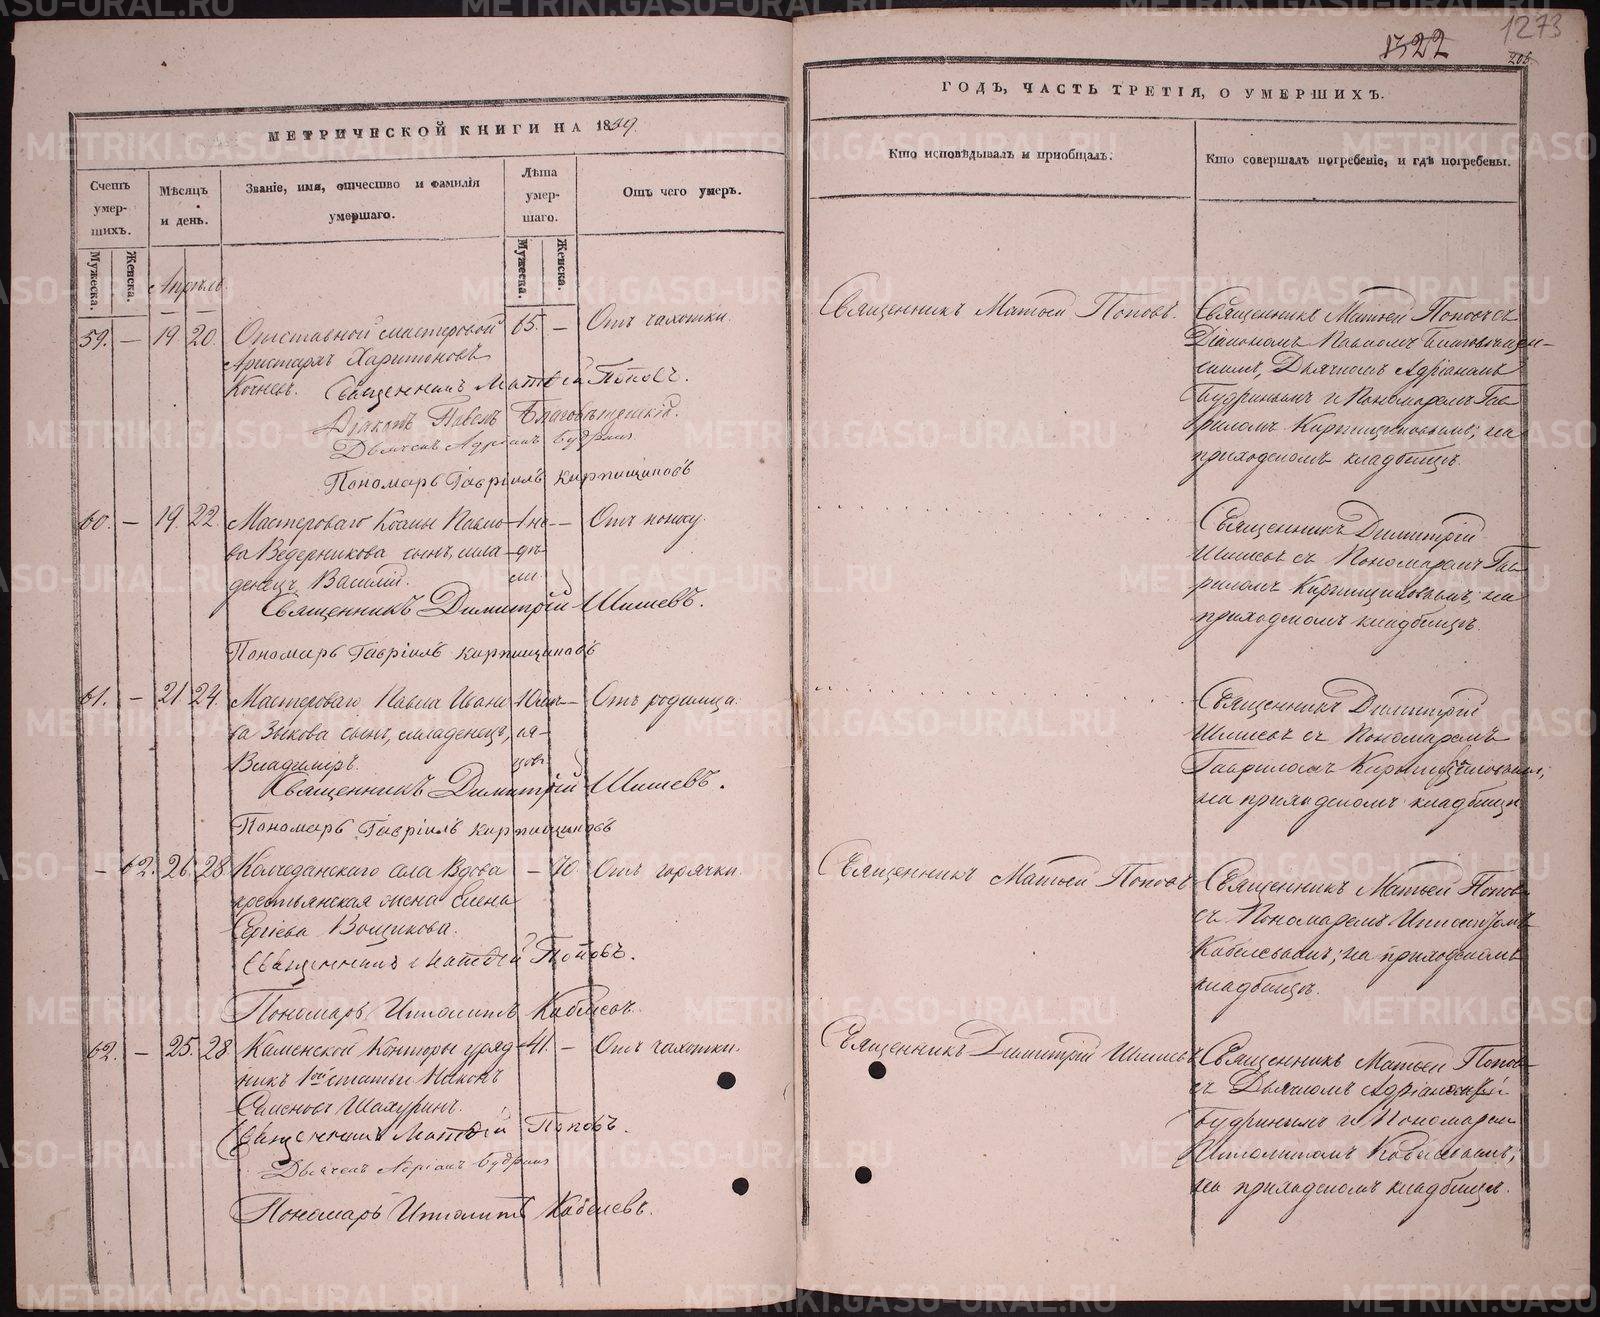 1322
1273
205.
МЕТРИЧЕСКОЙ КНИГИ НА 1859.
ГОДЪ, ЧАСТЬ ТРЕТІЯ, О УМЕРШИХЪ.
Счетъ умер-шихъ.
Мѣсяцъ и день.
Званіе, имя, отчество и фамилія умершаго.
Лѣта умер-шаго.
Отъ чего умеръ.
Кто исповѣдывалъ и пріобщалъ:
Кто совершалъ погребеніе, и гдѣ погребены.
Мужеска.
Женска.
Мужеска.
Женска.
Апрѣль
59. — 19 20. Отставной мастеровой 65. — Отъ чахотки.
Аристархъ Харитоновъ
Кочневъ.
Священникъ Матѳей Поповъ.
Діаконъ Павелъ Благовѣщенскій.
Дьячекъ Адріанъ Будринъ
Пономарь Гавріилъ Кирпищиковъ
Священникъ Матѳей Поповъ.
Священникъ Матѳей Поповъ съ
Діакономъ Павломъ Благовѣщен-
скимъ, Дьячкомъ Адріаномъ
Будринымъ и Пономаремъ Гав
риломъ Кирпищиковымъ; на
приходскомъ кладбищѣ.
60. — 19. 22. Мастероваго Косьмы Павло- 1 не- — Отъ поносу.
ва Ведерникова сынъ, мла- дѣ-
денецъ Василій. ли.
Священникъ Димитрій Шишевъ.
Пономарь Гавріилъ Кирпищиковъ
Священникъ Димитрій
Шишевъ съ Пономаремъ Гав
риломъ Кирпищиковымъ; на
приходскомъ кладбищѣ.
61. — 21 24. Мастероваго Павла Ивано 10 мѣ- — Отъ родимца.
ва Зыкова сынъ, младенецъ, ся-
Владиміръ. цовъ
Священникъ Димитрій Шишевъ.
Пономарь Гавріилъ Кирпищиковъ
Священникъ Димитрій
Шишевъ съ Пономаремъ
Гавриломъ Кирпищиковымъ;
на приходскомъ кладбищѣ
— 62. 26. 28 Колчеданскаго села Вдова — 70. Отъ горячки.
крестьянская жена Елена
Сергіева Вощикова.
Священникъ Матѳей Поповъ.
Пономарь Ипполитъ Кабелевъ.
Священникъ Матѳей Поповъ
Священникъ Матѳей Поповъ
съ Пономаремъ Ипполитомъ
Кабелевымъ; на приходскомъ
кладбищѣ.
62. — 25. 28 Каменской Конторы уряд- 41. — Отъ чахотки.
никъ 1ой статьи Никонъ
Семеновъ Шахуринъ.
Священникъ Матѳей Поповъ.
Дьячекъ Адріанъ Будринъ
Пономарь Ипполитъ Кабелевъ.
Священникъ Димитрій Шишевъ
Священникъ Матѳей Поповъ
съ Дьячкомъ Адріаномъ
Будринымъ и Пономаремъ
Ипполитомъ Кабелевымъ;
на приходскомъ кладбищѣ.
METRIKI.GASO-URAL.RU